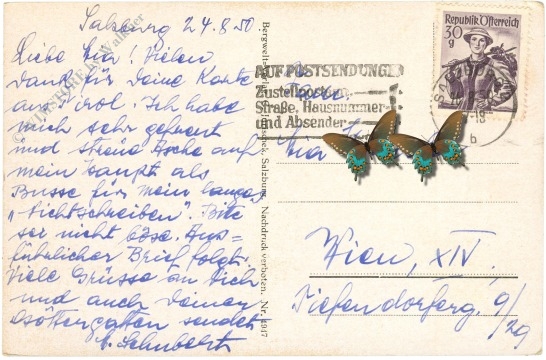 Salzburg 24.8.50
Liebe Eva! Vielen
Dank für Deine Karte
aus Tirol. Ich habe
mich sehr gefreut
und streue Asche auf
mein Haupt als
Busse für mein langes
„Nichtschreiben". Bitte
sei nicht böse. Aus=
führlicher Brief folgt.
Viele Grüsse an Dich
und auch Deinen
Göttergatten sendet
Schubert
Salzburg, Nachdruck verboten. Nr. 4917
Republik Österreich
30
g
AUF POSTSENDUNGEN
Zustellpostamt,
Straße, Hausnummer
und Absender
SALZBURG
18
b
Wien, XIV.
Tiefendorferg. 9/
29